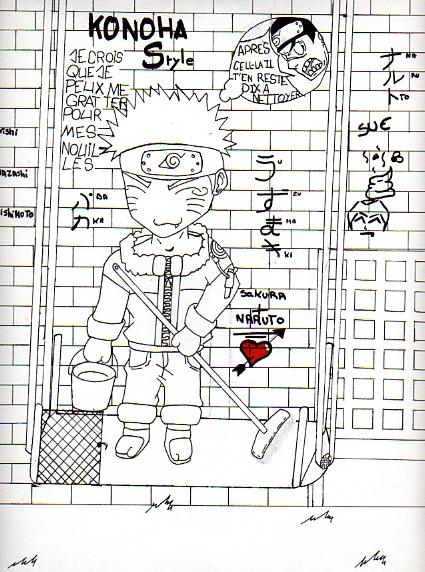 KONOHA
Style
JE CROIS
QUE JE
PEUX ME
GRATTER
POUR
MES
NOUIL
LES
APRES
CELUI LA IL
T'EN RESTE
DIX A
NETTOYER
ナ NA
ル RU
ト TO
バ BA
カ KA
う U
ず ZU
ま MA
き KI
SAKURA
+
NARUTO
ISHIMOTO